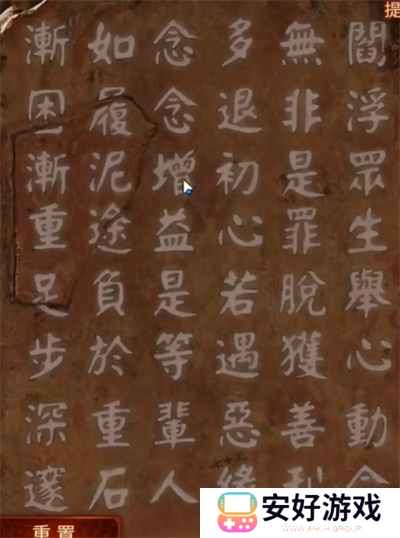 提
閻浮眾生舉心動念
無非是罪脫獲善利
多退初心若遇惡緣
念念增益是等輩人
如履泥途負於重石
漸困漸重足步深邃
重置
安好游戏